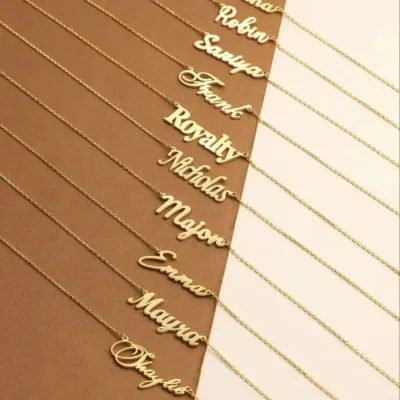 Robin
Saniya
Frank
Royalty
Nicholas
Major
Emma
Mayra